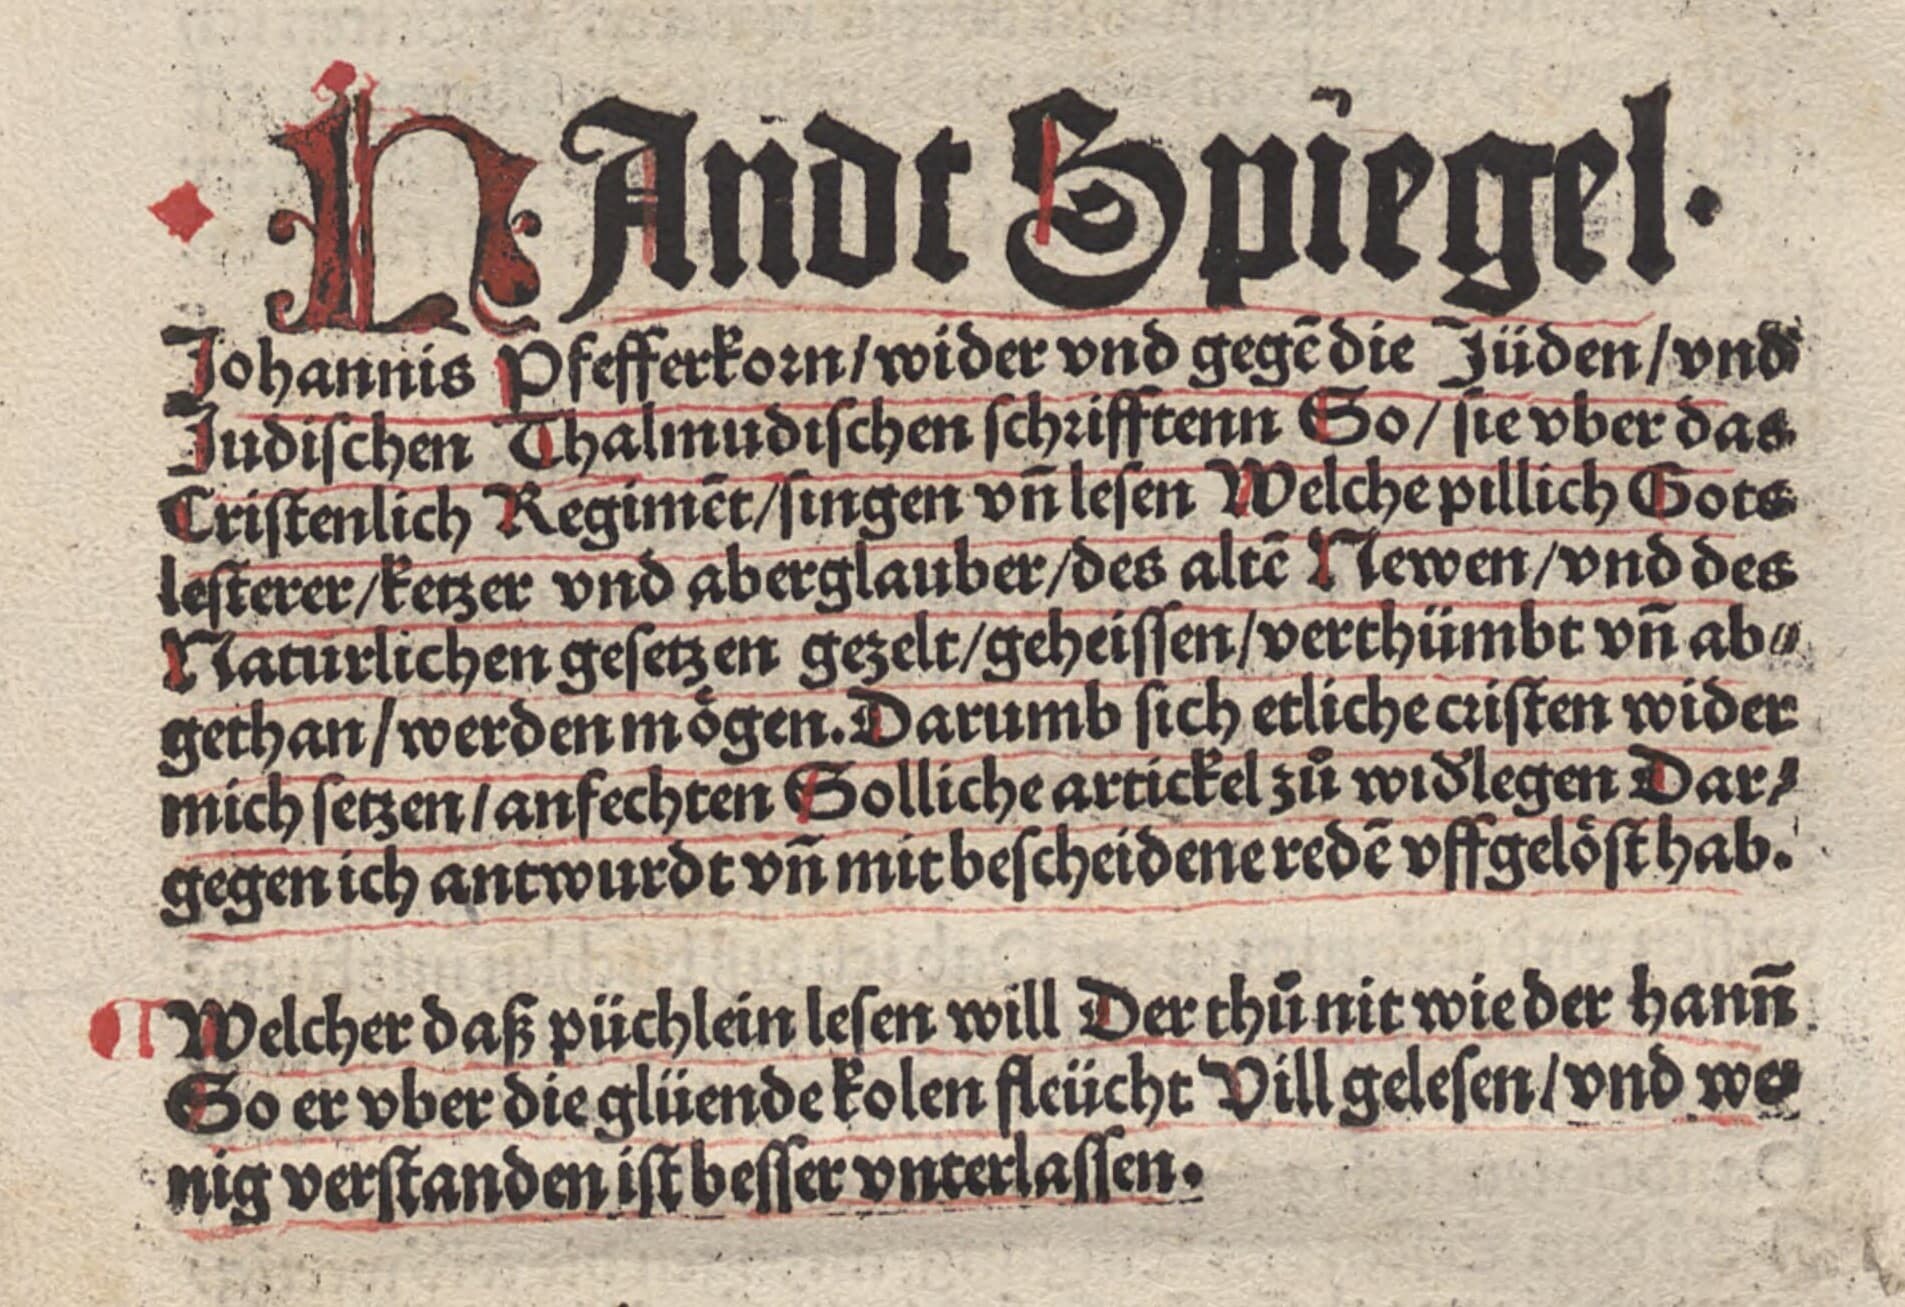 HAndt Spiegel.
Johannis Pfefferkorn/wider vnd gegē die Jüden/vnd
Judischen Thalmudischen schrifftenn So/ sie vber das
Cristenlich Regimēt/singen vn̄ lesen Welche pillich Gots
lesterer/ketzer vnd aberglauber/des altē Newen/vnd des
Naturlichen gesetzen gezelt/geheissen/verthümbt vn̄ ab⸗
gethan/werden moͤgen. Darumb sich etliche cristen wider
mich setzen/anfechten Solliche artickel zů wid̕legen Dar⸗
gegen ich antwurdt vn̄ mit bescheidene redē vffgeloͤst hab.
¶ Welcher daß püchlein lesen will Der thů nit wie der hann̄
So er vber die glüende kolen fleücht Vill gelesen/vnd we⸗
nig verstanden ist besser vnterlassen.